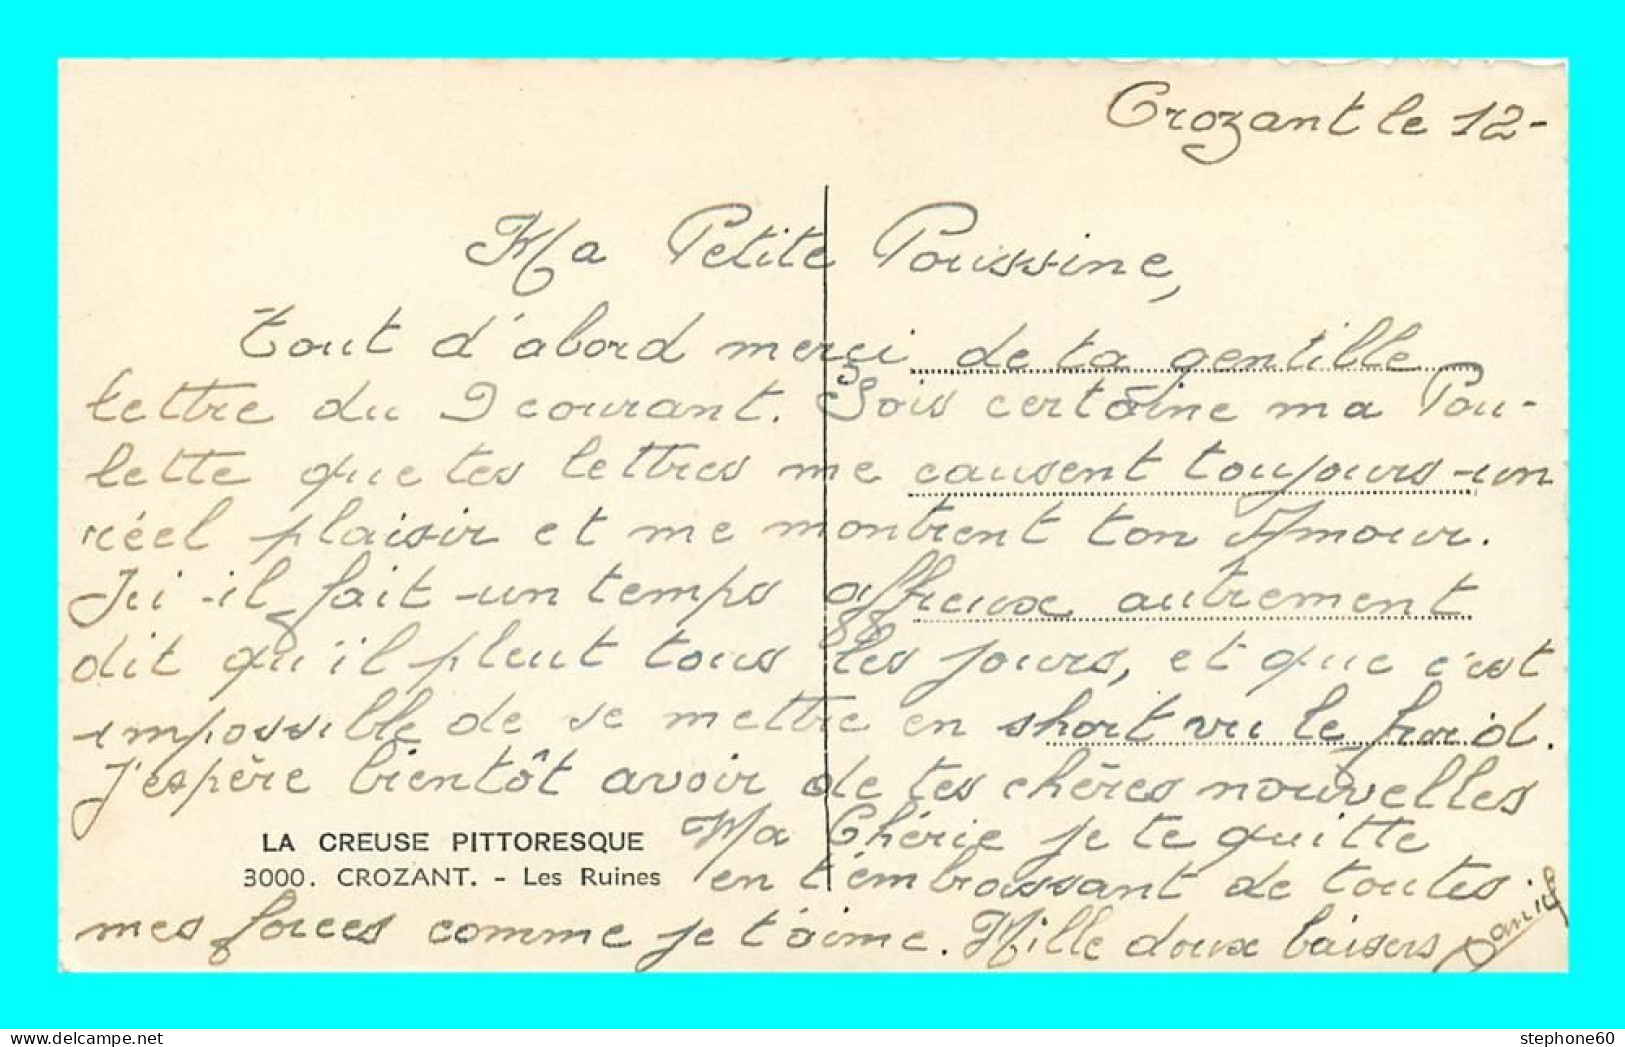 Crozant le 12-
Ma Petite Poussine,
Tout d'abord merci de ta gentille
lettre du 9 courant. Sois certaine ma Pou-
lette que tes lettres me causent toujours un
réel plaisir et me montrent ton Amour.
Ici il fait un temps affreux autrement
dit qu'il pleut tous les jours, et que c'est
impossible de se mettre en short vu le froid.
J'espère bientôt avoir de tes chères nouvelles
Ma Chérie je te quitte
en t'embrassant de toutes
mes forces comme je t'aime. Mille doux baisers
Daniel
LA CREUSE PITTORESQUE
3000. CROZANT. - Les Ruines
stephone60